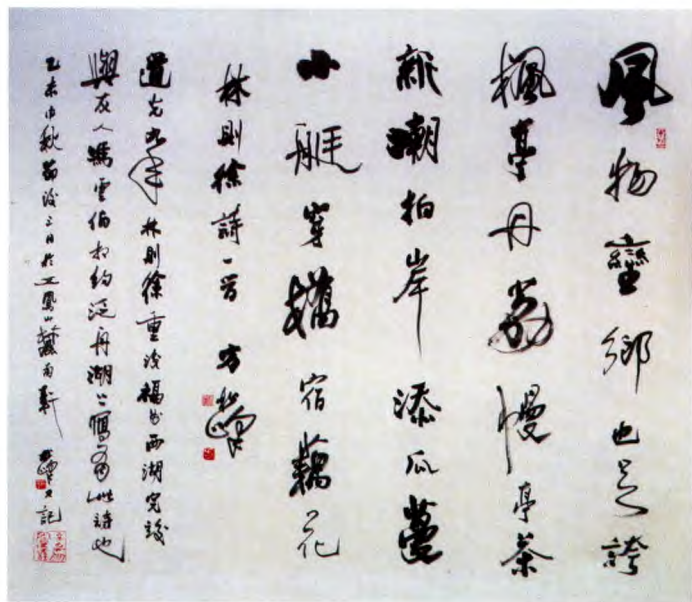 風物蠻鄉也足誇
楓亭丹荔幔亭茶
新潮拍岸添瓜蔓
小艇穿橋宿藕花
林則徐詩一首 方松峰
道光九年林則徐重浚福州西湖完竣
與友人馮雲伯相約泛舟湖上 此詩也
乙未中秋節後三日於五鳳山麓南軒 松峰又記